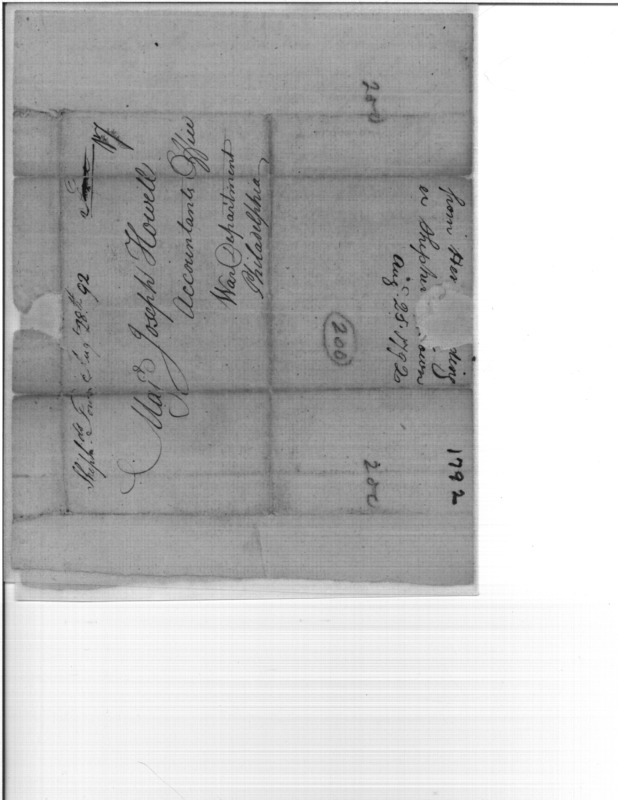 Sheph'ds Town Aug 28th 92
Mr Joseph Howell
Accountants Office
War Department
Philadelphia
from Hen
ting
in Shepher town
Aug 28. 1792
200
200
200
1792